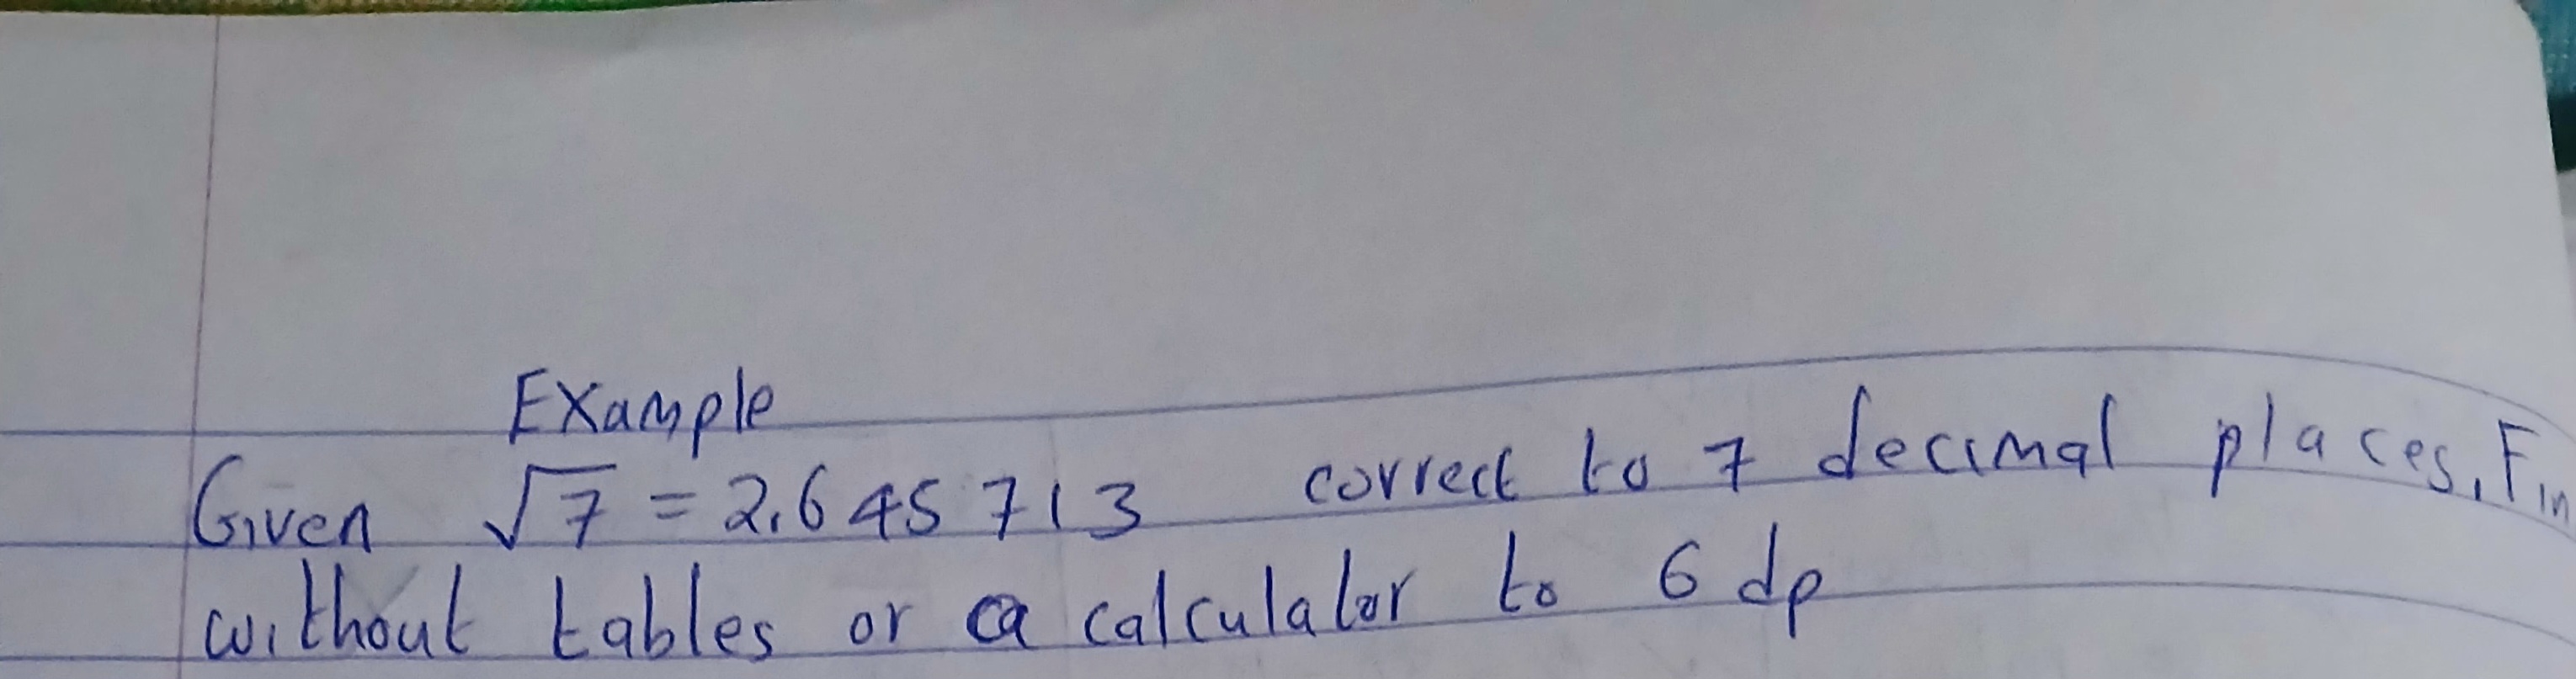 Example
Given √7 = 2.645713 correct to 7 decimal places, Fin
without tables or a calculator to 6 dp